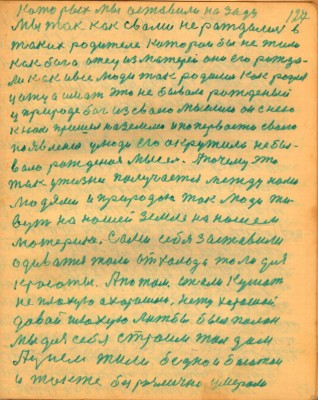 которых мы оставили на заду 127
Мы так как свами не рождался в
таких родителе которой бы не жило
как бога отец из матерей оно его рожда-
ли как и все люди так родился как родня
у отца и мат это не бывал рожденый
у природе бог из своего мысли он с нею
к нам пришел на землю и поперьвасто свого
появления у людей его окружили небы-
вало рождения мысли. А почему это
так у жизни получается между нами
людями и природой так люди жи-
вут на нашей земле на нашем
материке. Сами себя заставили
одиватся толи от холода толи для
красоты. А потом стали кушат
не плохую а хорошию, нету хорошой
давай плохую лижбы была полон
Мы для себя строим там дом
А у нем жили бедно и богатой
и также безразлично умерали